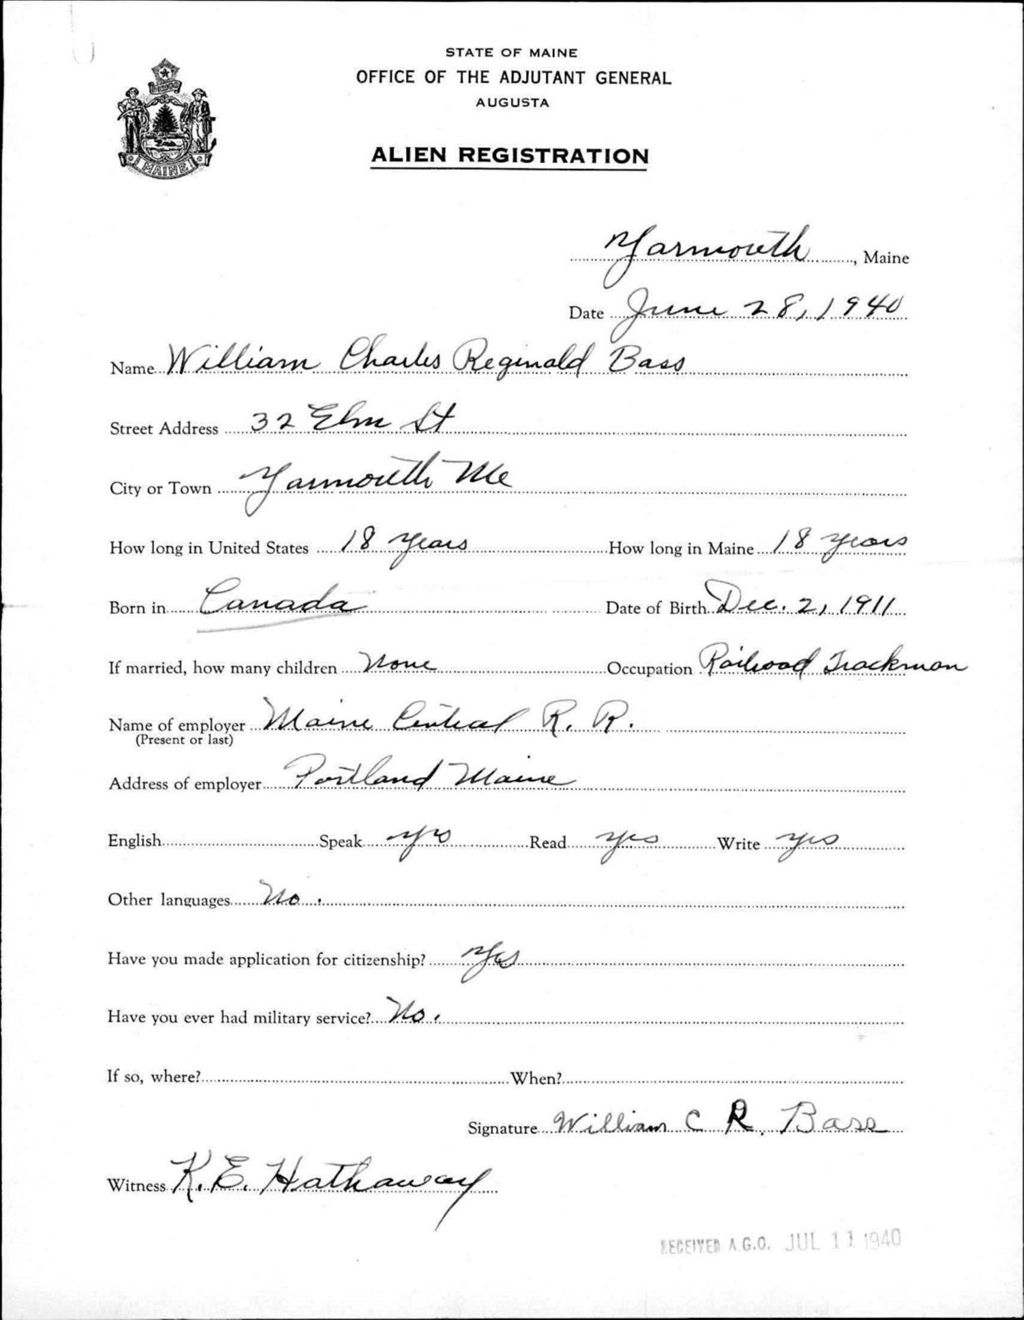 STATE OF MAINE
OFFICE OF THE ADJUTANT GENERAL
AUGUSTA
ALIEN REGISTRATION
MAINE
Yarmouth, Maine
Date June 28, 1940
Name William Charles Reginald Bass
Street Address 32 Elm St
City or Town Yarmouth Me
How long in United States 18 years How long in Maine 18 years
Born in Canada Date of Birth Dec. 2, 1911
If married, how many children None Occupation Railroad Trackman
Name of employer Maine Central R. R.
(Present or last)
Address of employer Portland Maine
English Speak yes Read yes Write yes
Other languages No.
Have you made application for citizenship? Yes
Have you ever had military service? No.
If so, where? When?
Signature William C R. Bass
Witness K. E. Hathaway
RECEIVED A.G.O. JUL 11 1940